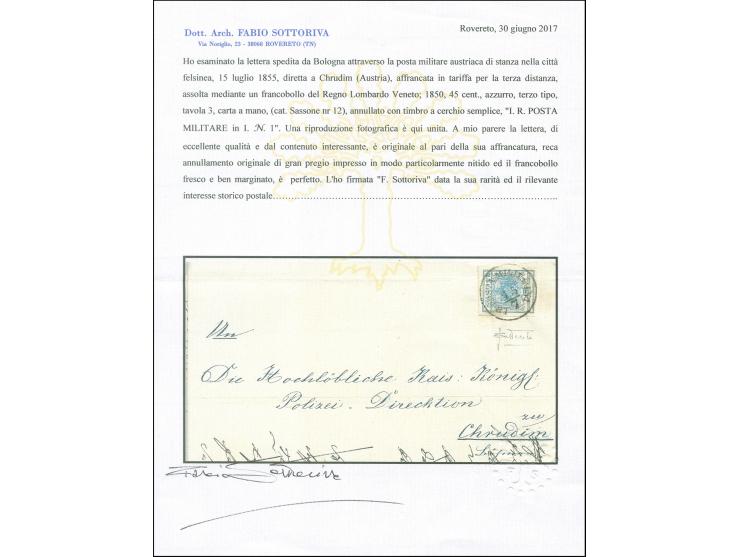 Dott. Arch. FABIO SOTTORIVA
Via Noriglio, 23 - 38068 ROVERETO (TN)
Rovereto, 30 giugno 2017
Ho esaminato la lettera spedita da Bologna attraverso la posta militare austriaca di stanza nella città
felsinea, 15 luglio 1855, diretta a Chrudim (Austria), affrancata in tariffa per la terza distanza,
assolta mediante un francobollo del Regno Lombardo Veneto; 1850, 45 cent., azzurro, terzo tipo,
tavola 3, carta a mano, (cat. Sassone nr 12), annullato con timbro a cerchio semplice, "I. R. POSTA
MILITARE in I. N. 1". Una riproduzione fotografica è qui unita. A mio parere la lettera, di
eccellente qualità e dal contenuto interessante, è originale al pari della sua affrancatura, reca
annullamento originale di gran pregio impresso in modo particolarmente nitido ed il francobollo
fresco e ben marginato, è perfetto. L'ho firmata "F. Sottoriva" data la sua rarità ed il rilevante
interesse storico postale
An
Die Hochlöbliche Kais: Königl:
Polizei-Direcktion
zu
Chrudim